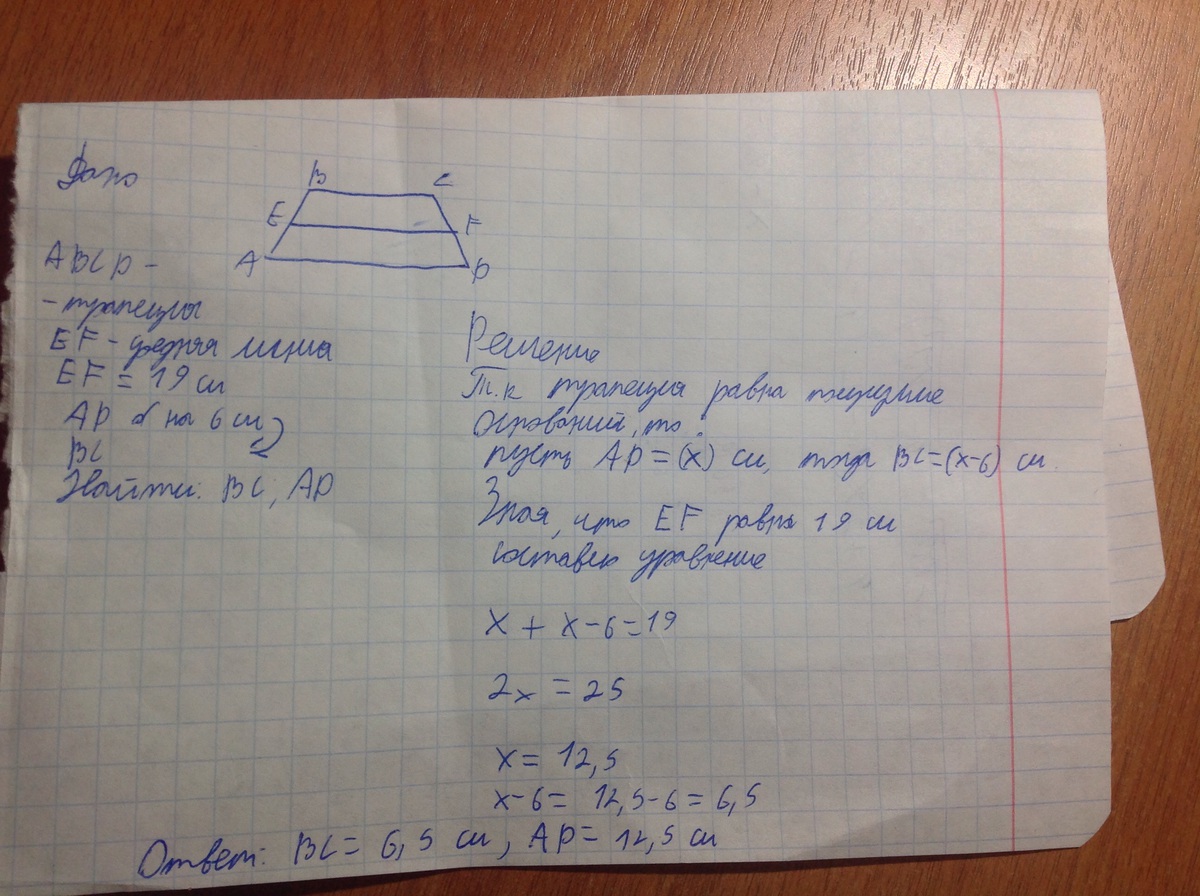 Дано
B C
E F
A D
ABCD -
- трапеция
EF - средняя линия
EF = 19 см
AD б на 6 см
BC
Найти: BC, AD
Решение
Т.к трапеция равна
оснований, то
пусть AD = (x) см, тогда BC = (x-6) см.
Зная, что EF равна 19 см
составлю уравнение
x + x - 6 = 19
2x = 25
x = 12,5
x - 6 = 12,5 - 6 = 6,5
Ответ: BC = 6,5 см, AD = 12,5 см